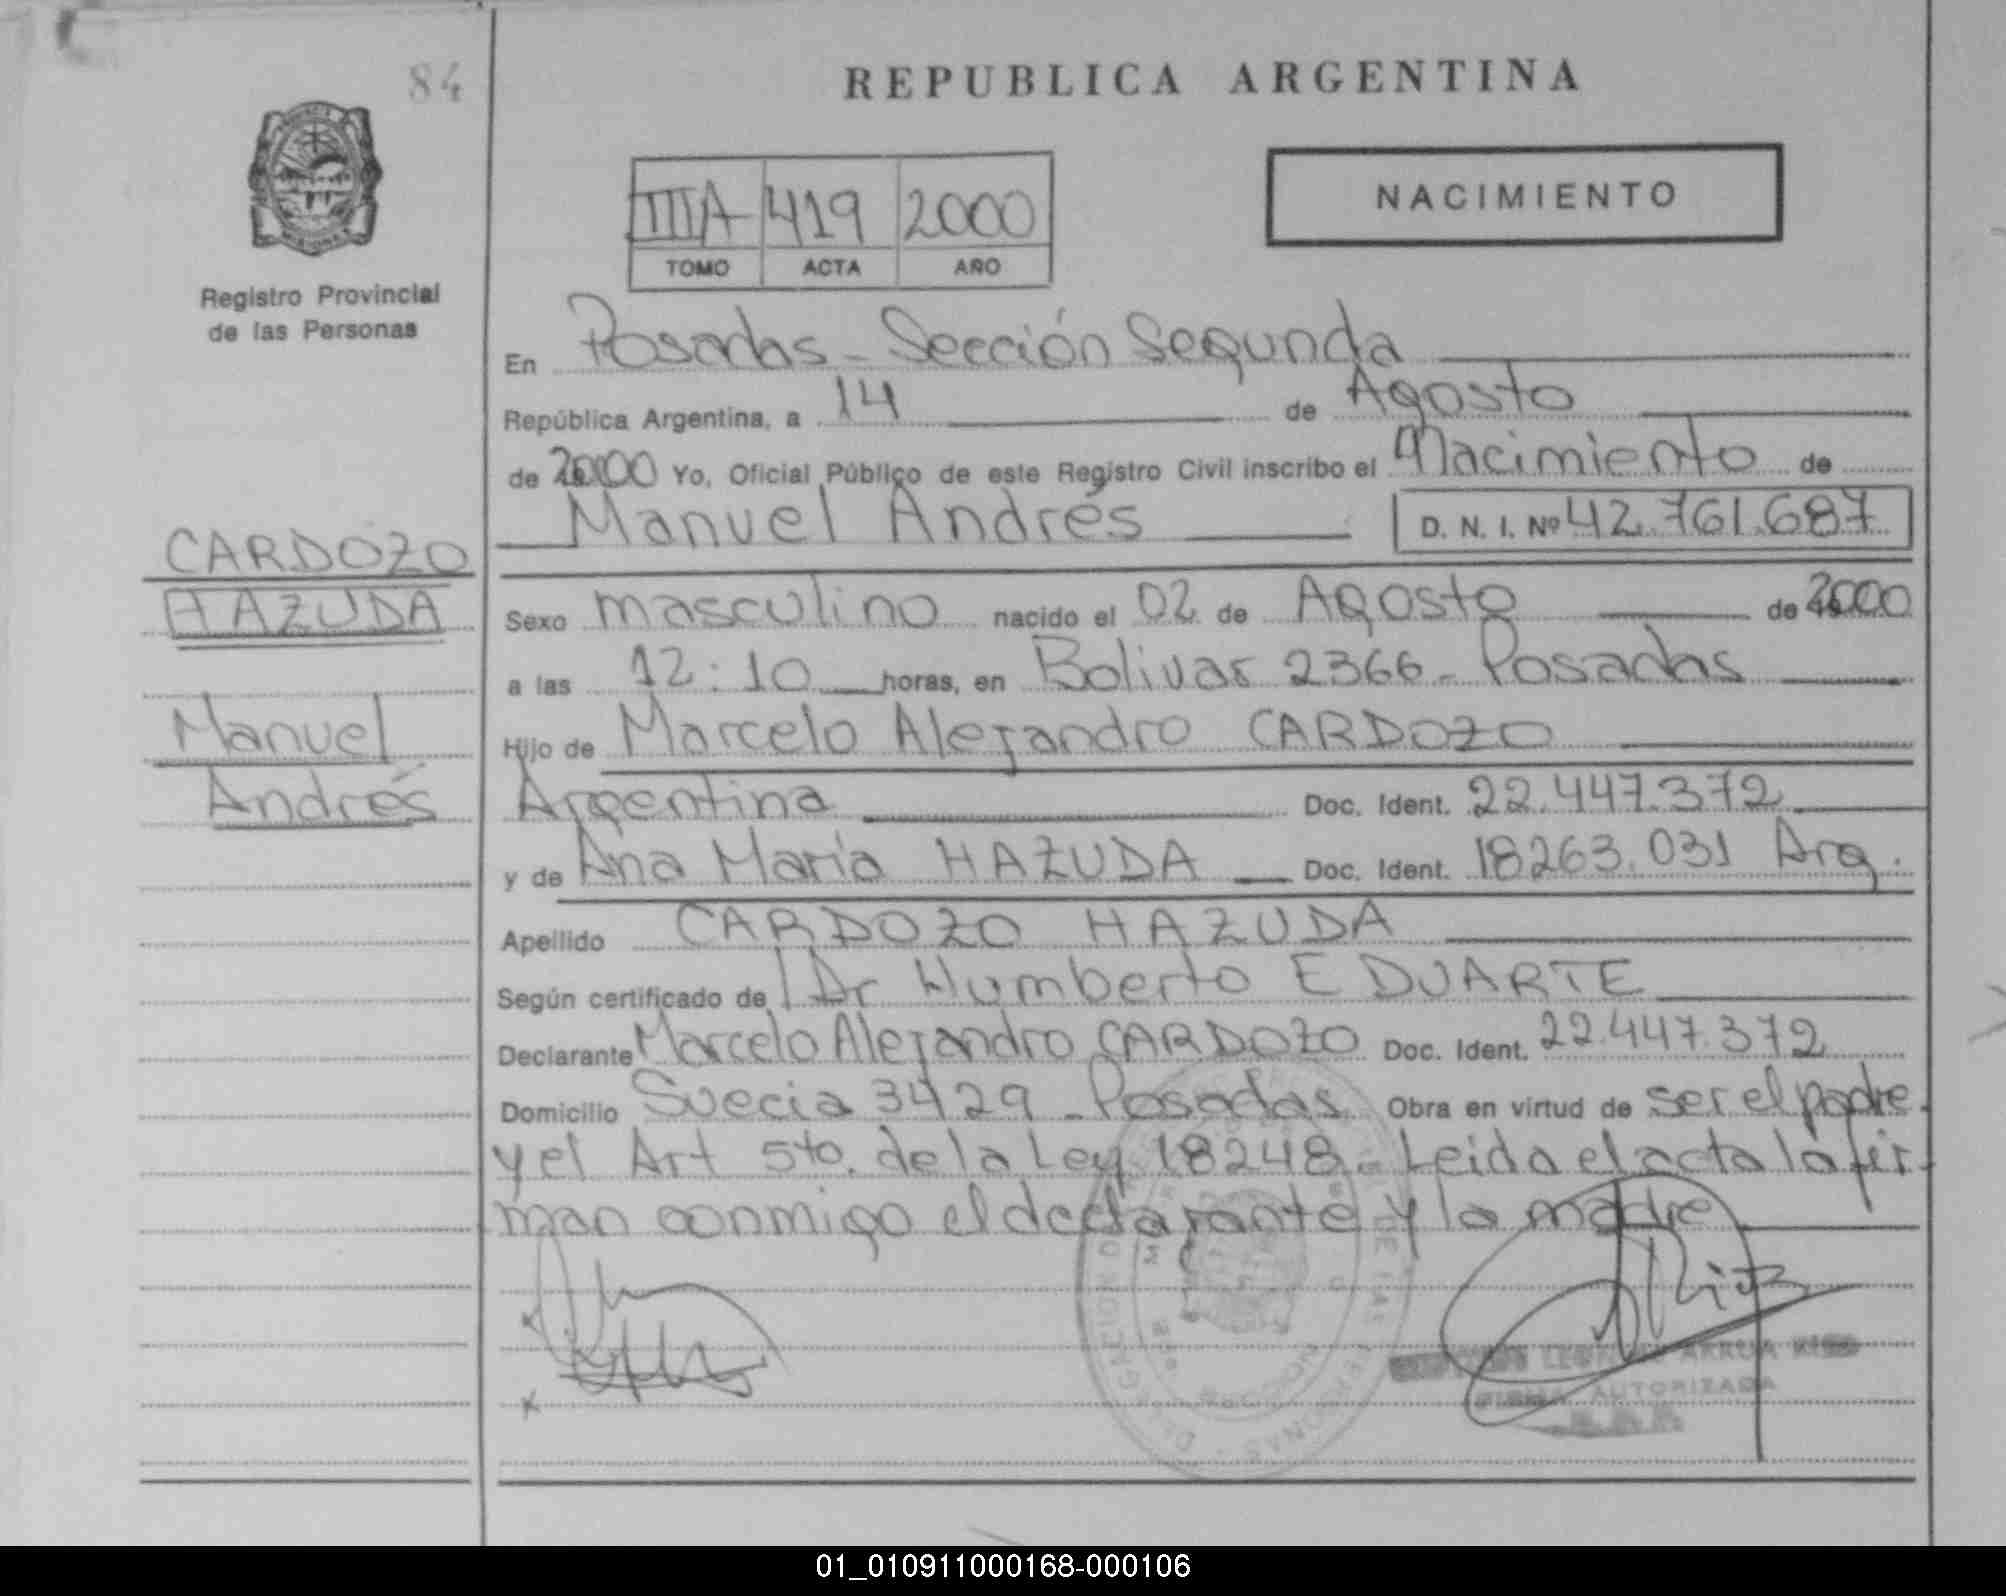 84
REPUBLICA ARGENTINA
NACIMIENTO
IIIA 419 2000
TOMO ACTA AÑO
Registro Provincial
de las Personas
CARDOZO
HAZUDA
Manuel
Andrés
En Posadas - Sección Segunda
República Argentina, a 14 de Agosto
de 2000 Yo, Oficial Público de este Registro Civil inscribo el Nacimiento de
Manuel Andrés D. N. I. Nº 42.761.687
Sexo masculino nacido el 02 de Agosto de 2000
a las 12:10 horas, en Bolivar 2366 - Posadas
Hijo de Marcelo Alejandro CARDOZO
Argentina Doc. Ident. 22.447.372
y de Ana María HAZUDA Doc. Ident. 18263.031 Arg.
Apellido CARDOZO HAZUDA
Según certificado de Dr Humberto E DUARTE
Declarante Marcelo Alejandro CARDOZO Doc. Ident. 22.447.372
Domicilio Suecia 3429 - Posadas Obra en virtud de ser el padre
y el Art 5to. de la Ley 18248. Leida el acta la fir-
man conmigo el declarante y la madre
ARRUA
FIRMA AUTORIZADA
01_010911000168-000106